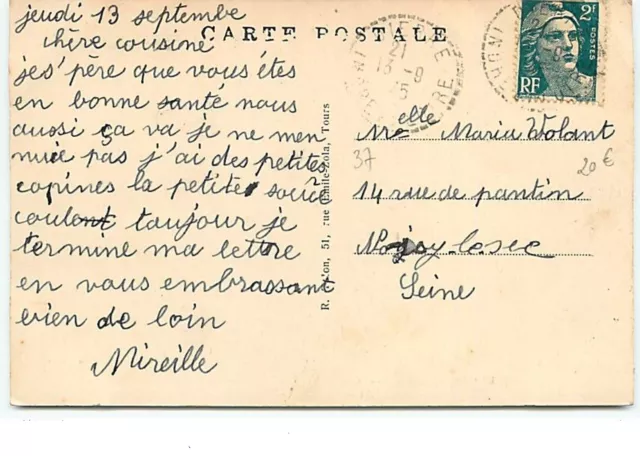 jeudi 13 septembe
chère cousine
jes'père que vous êtes
en bonne santé nous
aussi ça va je ne men
nuie pas j'ai des petites
copines la petite source
coulent toujour je
termine ma lettre
en vous embrassant
bien de loin
Mireille
CARTE POSTALE
R. 51, rue Emile-Zola, Tours
2F
POSTES
RF
21
13 - 9
5
Melle Maria Wolant
37
20 €
14 rue de pantin
Noisy-le sec
Seine